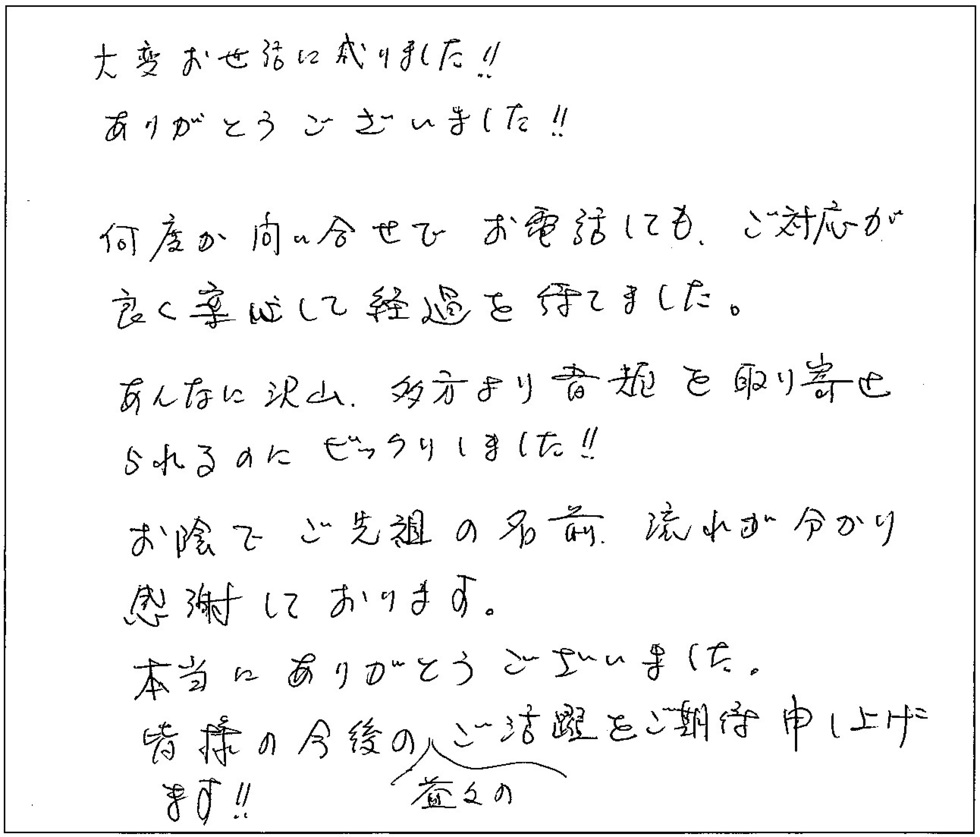 大変お世話に成りました!!
ありがとうございました!!
何度か問い合せで お電話しても、ご対応が
良く安心して経過を待てました。
あんなに沢山、多方より書類を取り寄せ
られるのにびっくりしました!!
お陰でご先祖の名前、流れが分かり
感謝しております。
本当にありがとうございました。
皆様の今後のご活躍をご期待申し上げ
ます!!
益々の